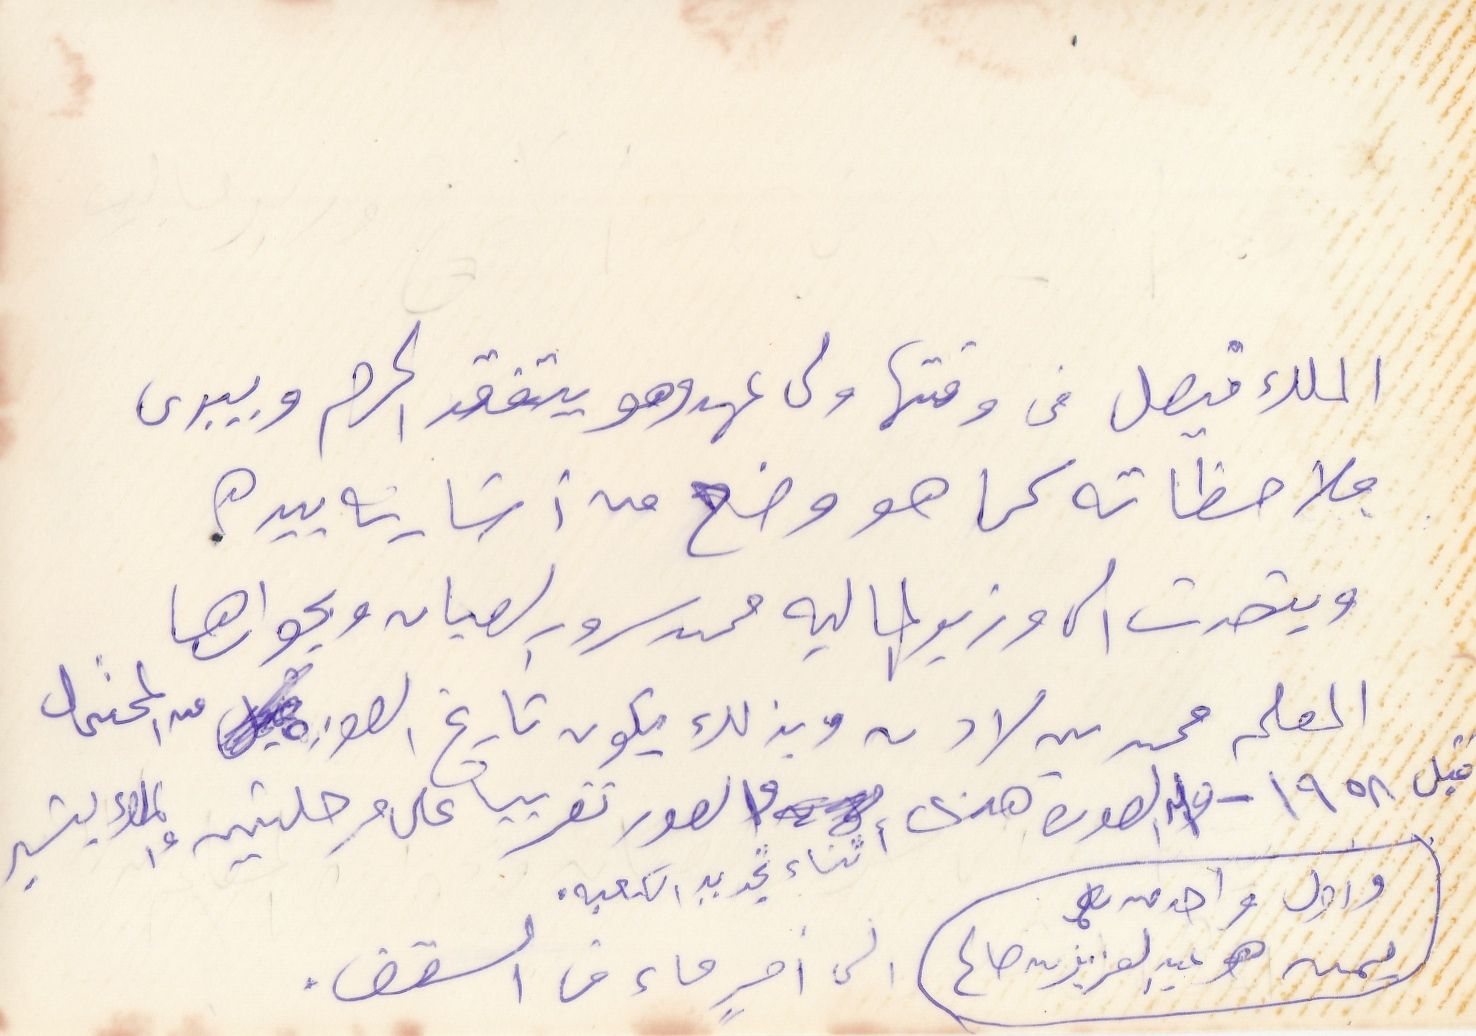 الملك فيصل فى وقتها ولى عهد وهو يتفقد الحرم ويبدى
ملاحظاته كما هو وضح من أشارته بيده
ويتحدث الى وزير المالية محمد سرور الصبان وبجوارهما
المعلم محمد بن لادن وبذلك يكون تاريخ الصور من المحتمل
قبل ١٩٥٨ - الصورة هذى والصور تقريبا على مرحلتين والملك يشير
أثناء تجديد الكعبه.
واول واحد من
يمين هو عبد العزيز بن صالح
الى أخر ماء فى السقف.